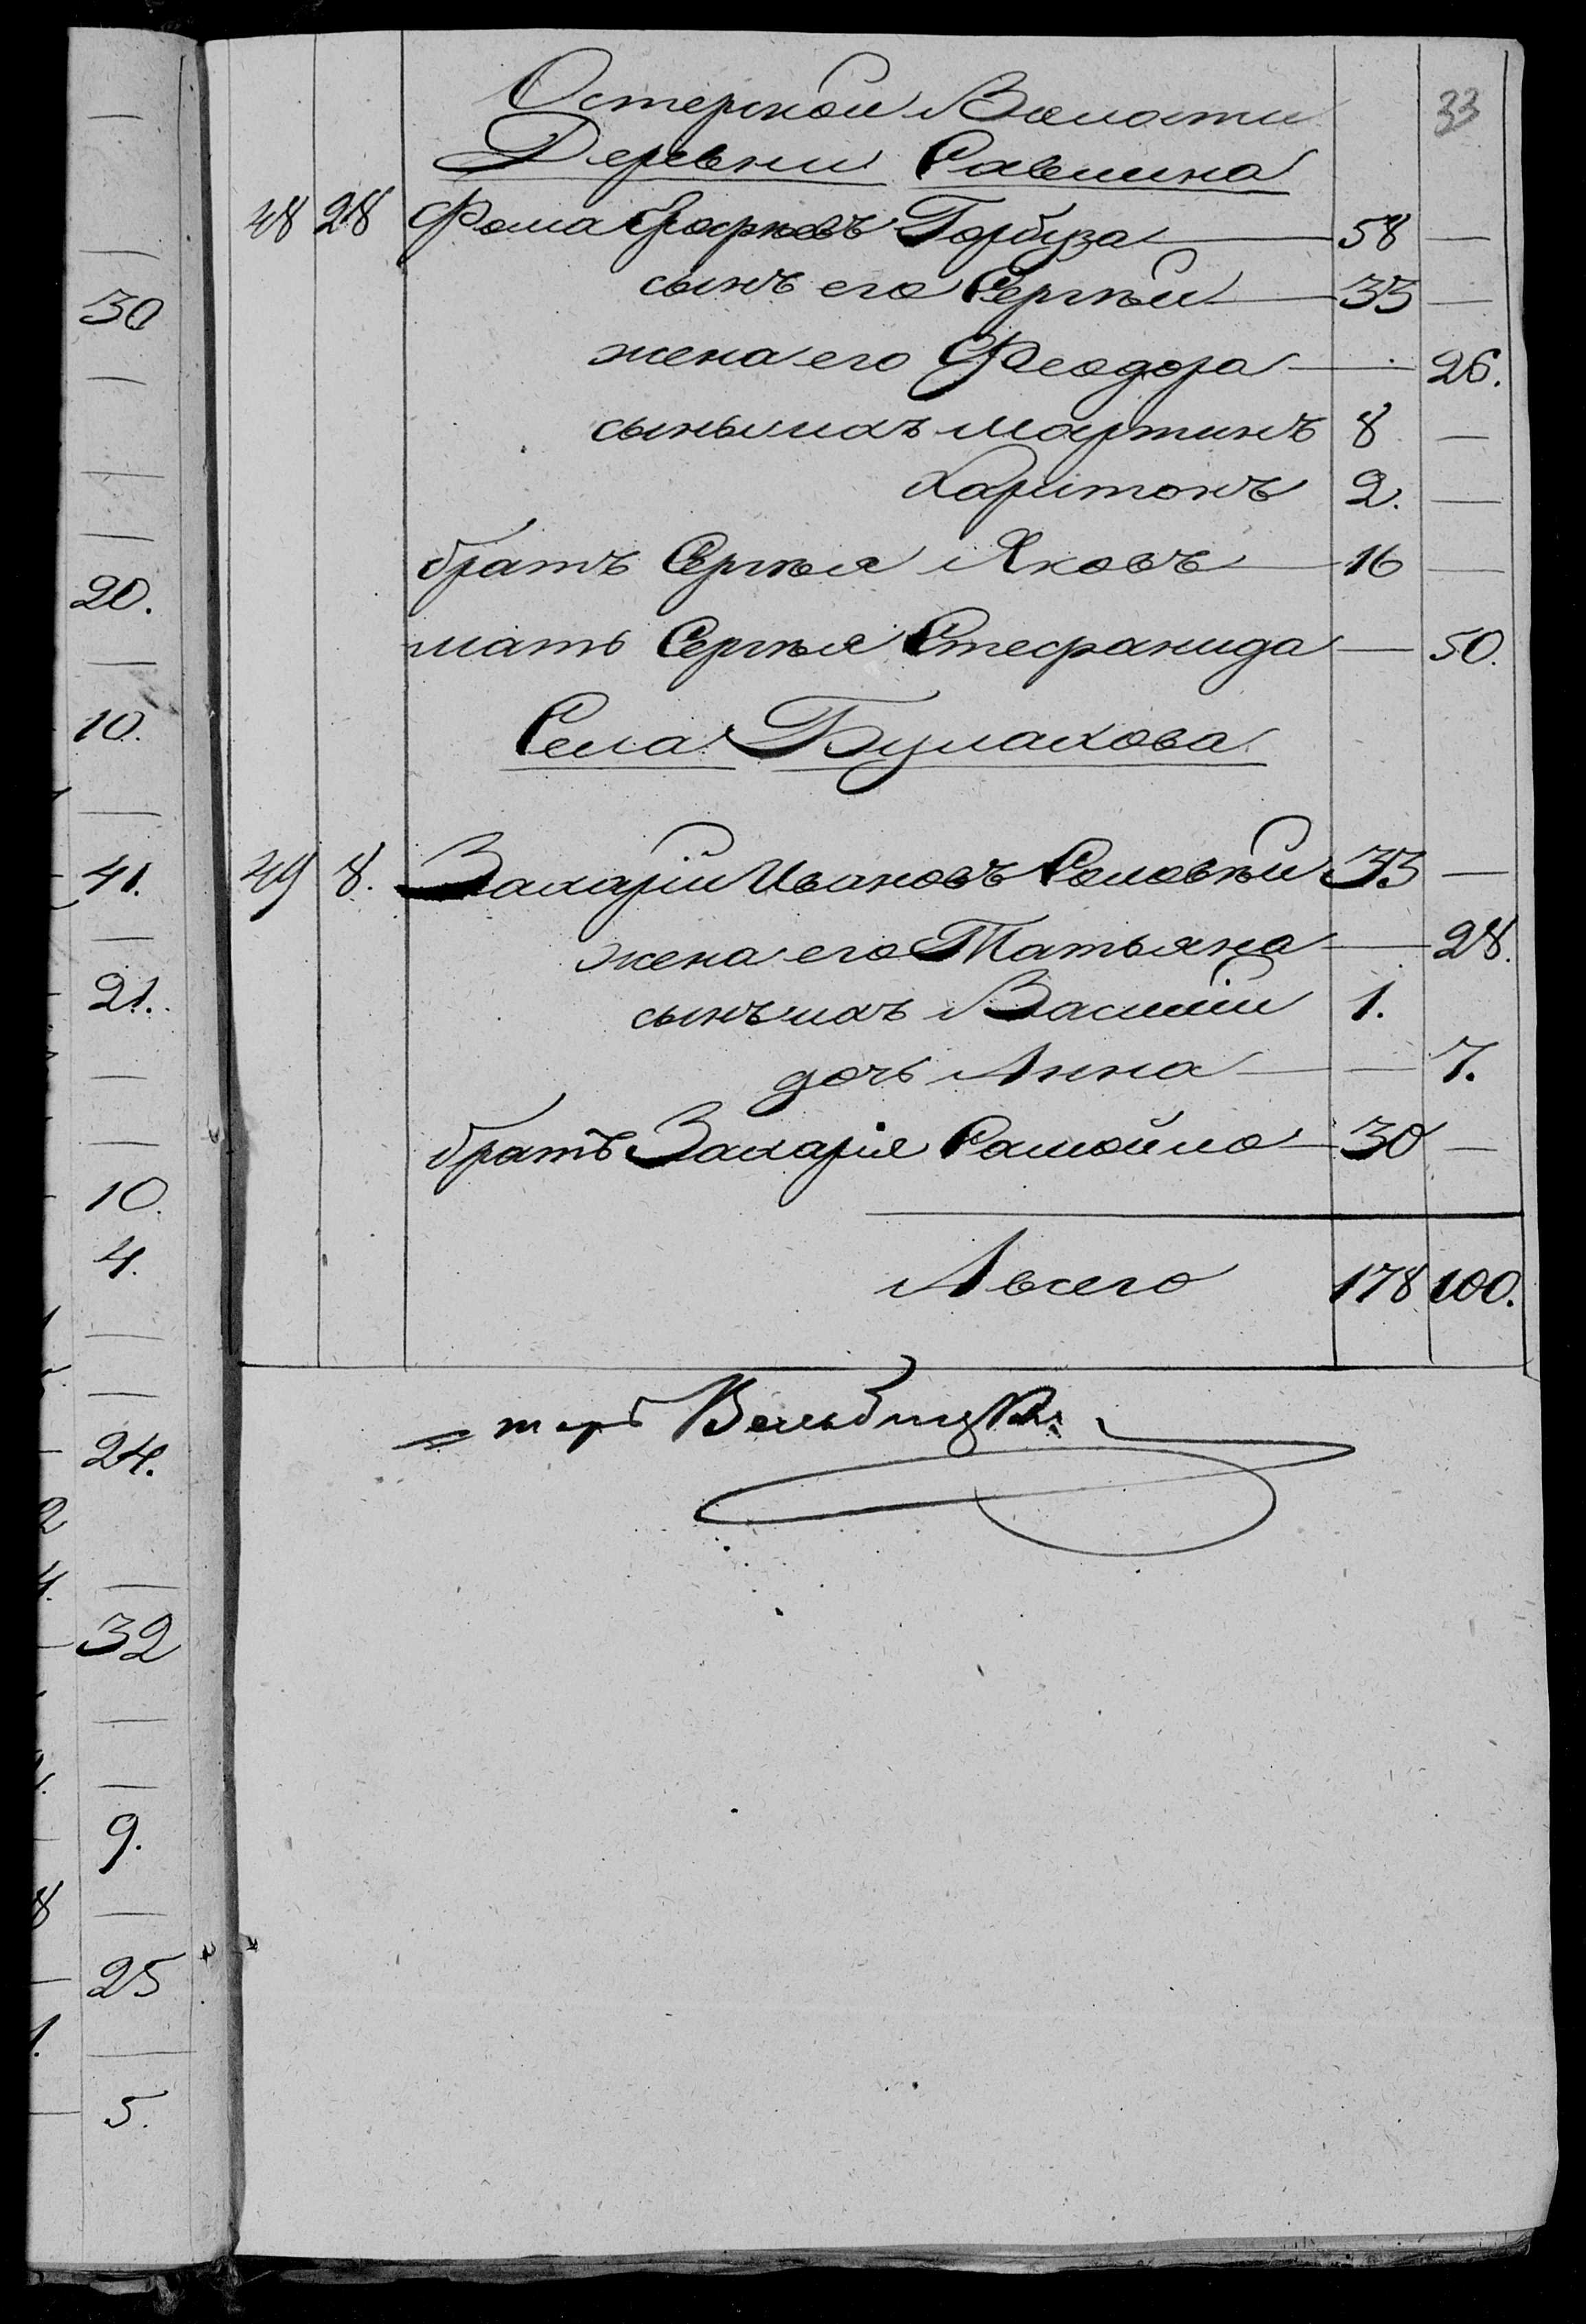 33
Остерской Волости
Деревни Савлина
48 28 Фома Трофимовъ Гарбуза — 58 —
сынъ его Сергѣй — 33 —
жена его Феодора — 26.
сынъ ихъ Мартинъ 8 —
Харитонъ 2. —
братъ Сергѣя Яковъ — 16 —
мать Сергѣя Стефанида — 50.
Села Булахова
49 8. Захарій Ивановъ Соловѣй 33 —
жена его Татьяна — 28.
сынъ ихъ Василій 1.
дочь Анна — — 7.
братъ Захарія Самойло — 30 —
А всего 178 100.
30
20.
10.
41.
21.
10.
4.
24.
32
9.
25
5.